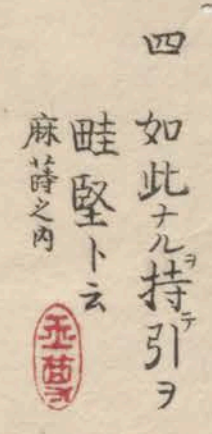 四 如此ナルヲ持テ引ヲ
畦堅ト云
麻蒔之内